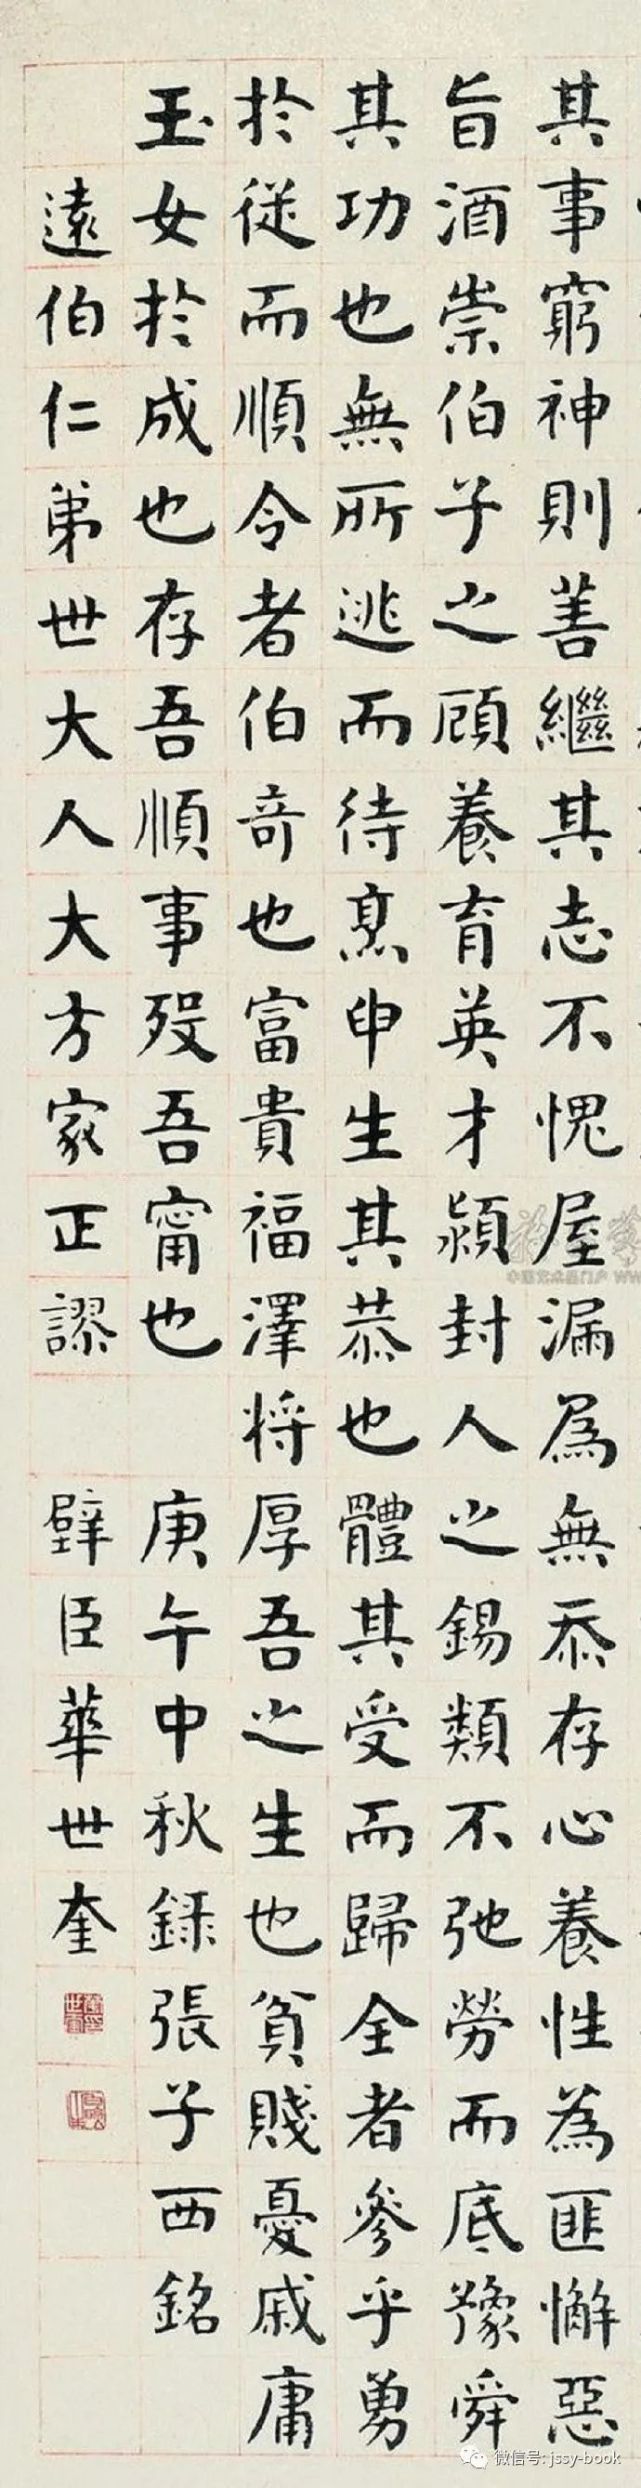 其事窮神則善繼其志不愧屋漏為無忝存心養性為匪懈惡
旨酒崇伯子之顧養育英才潁封人之錫類不弛勞而底豫舜
其功也無所逃而待烹申生其恭也體其受而歸全者參乎勇
於從而順令者伯奇也富貴福澤将厚吾之生也貧賤憂戚庸
玉女於成也存吾順事歿吾甯也 庚午中秋録張子西銘
遠伯仁弟世大人大方家正謬 璧臣華世奎
微信号: jssy-book